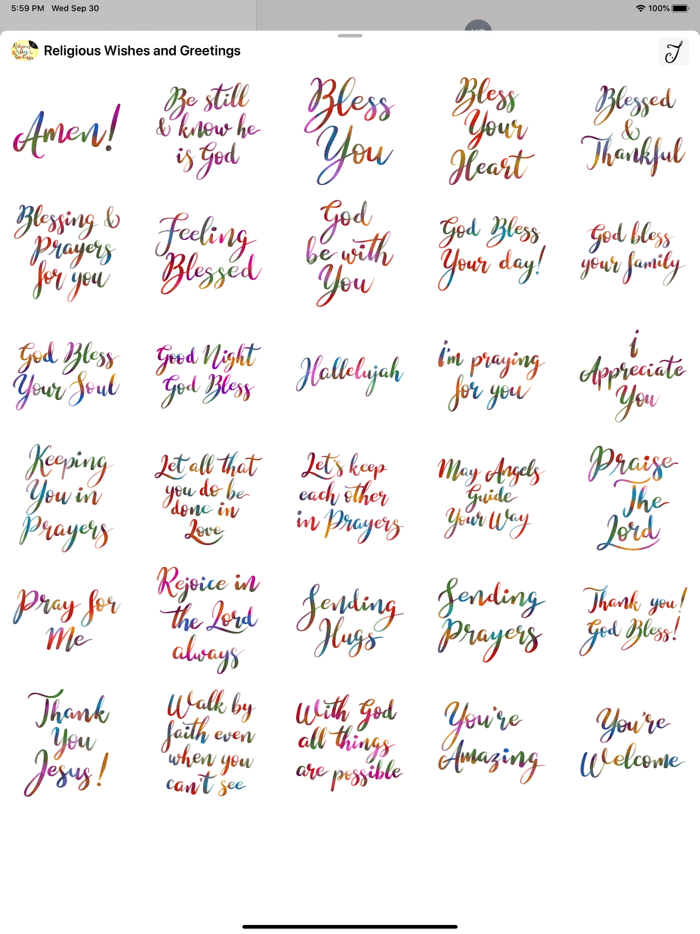 5:59 PM Wed Sep 30
100%
Religious Wishes and Greetings
Amen!
Be still
& know he
is God
Bless
You
Bless
Your
Heart
Blessed
&
Thankful
Blessing &
Prayers
for you
Feeling
Blessed
God
be with
You
God Bless
Your day!
God bless
your family
God Bless
Your Soul
Good Night
God Bless
Hallelujah
i'm praying
for you
i
Appreciate
You
Keeping
You in
Prayers
Let all that
you do be
done in
Love
Let's keep
each other
in Prayers
May Angels
Guide
Your Way
Praise
The
Lord
Pray for
Me
Rejoice in
the Lord
always
Sending
Hugs
Sending
Prayers
Thank you!
God Bless!
Thank
You
Jesus!
Walk by
faith even
when you
can't see
With God
all things
are possible
You're
Amazing
You're
Welcome